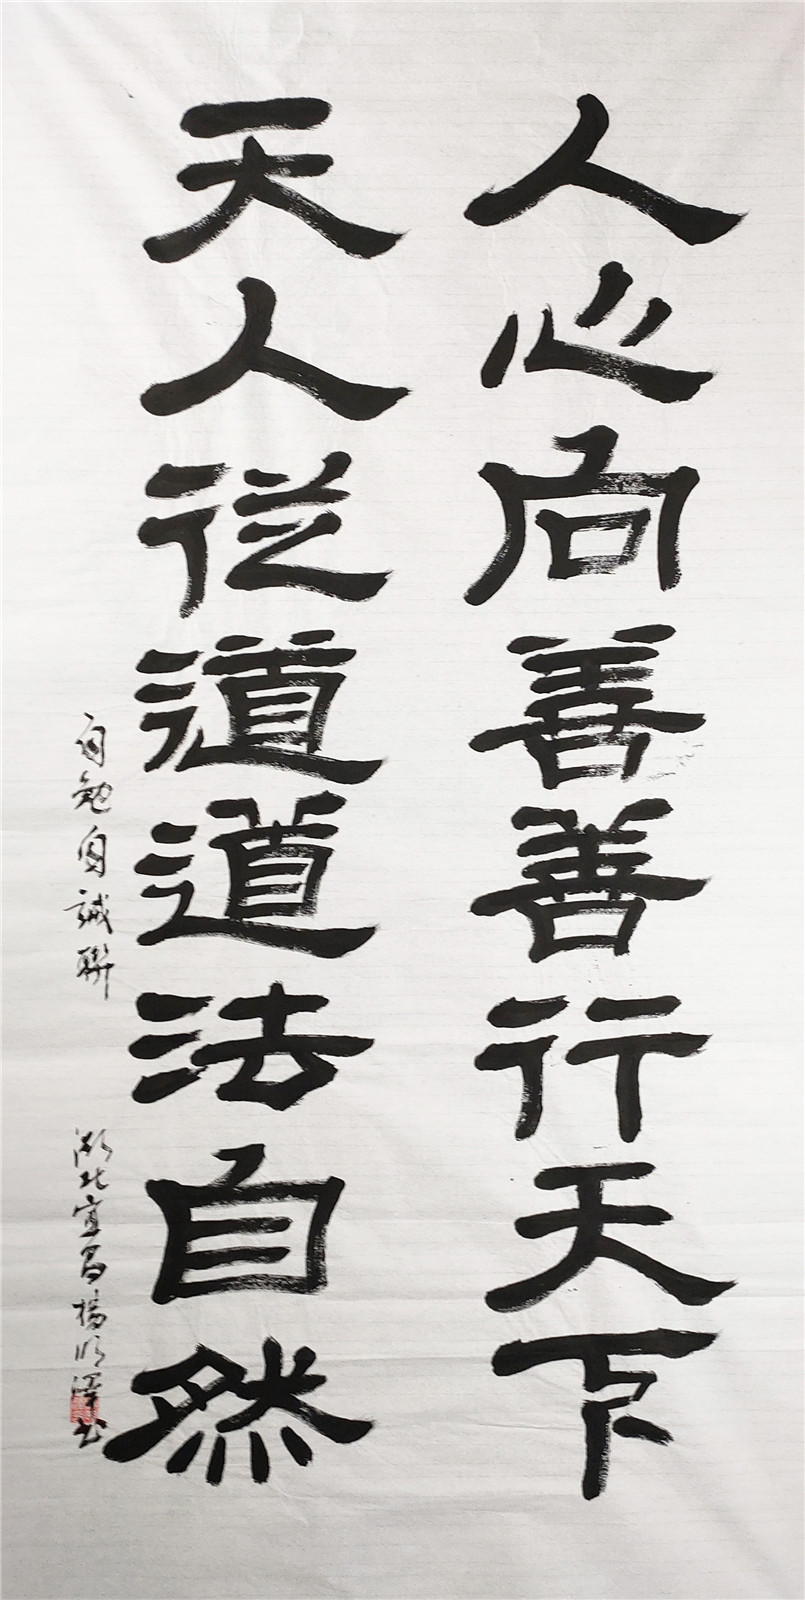 人心向善善行天下
天人從道道法自然
自勉自誡聯
湖北宜昌楊明澤书